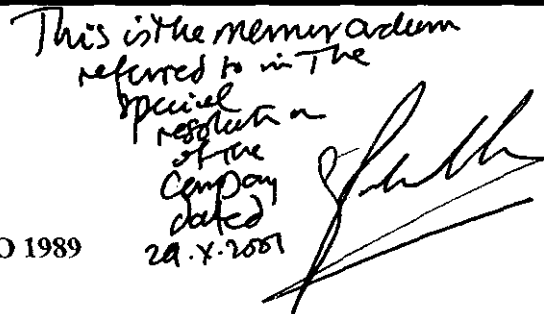 This is the memorandum
referred to in The
special
resolution
of the
Company
dated
29.X.2001
O 1989